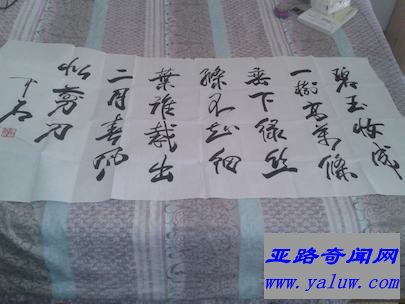 碧玉妆成
一樹高萬條
垂下绿丝
絛不知细
葉谁裁出
二月春风
似剪刀
亚路奇闻网
www.yaluw.com